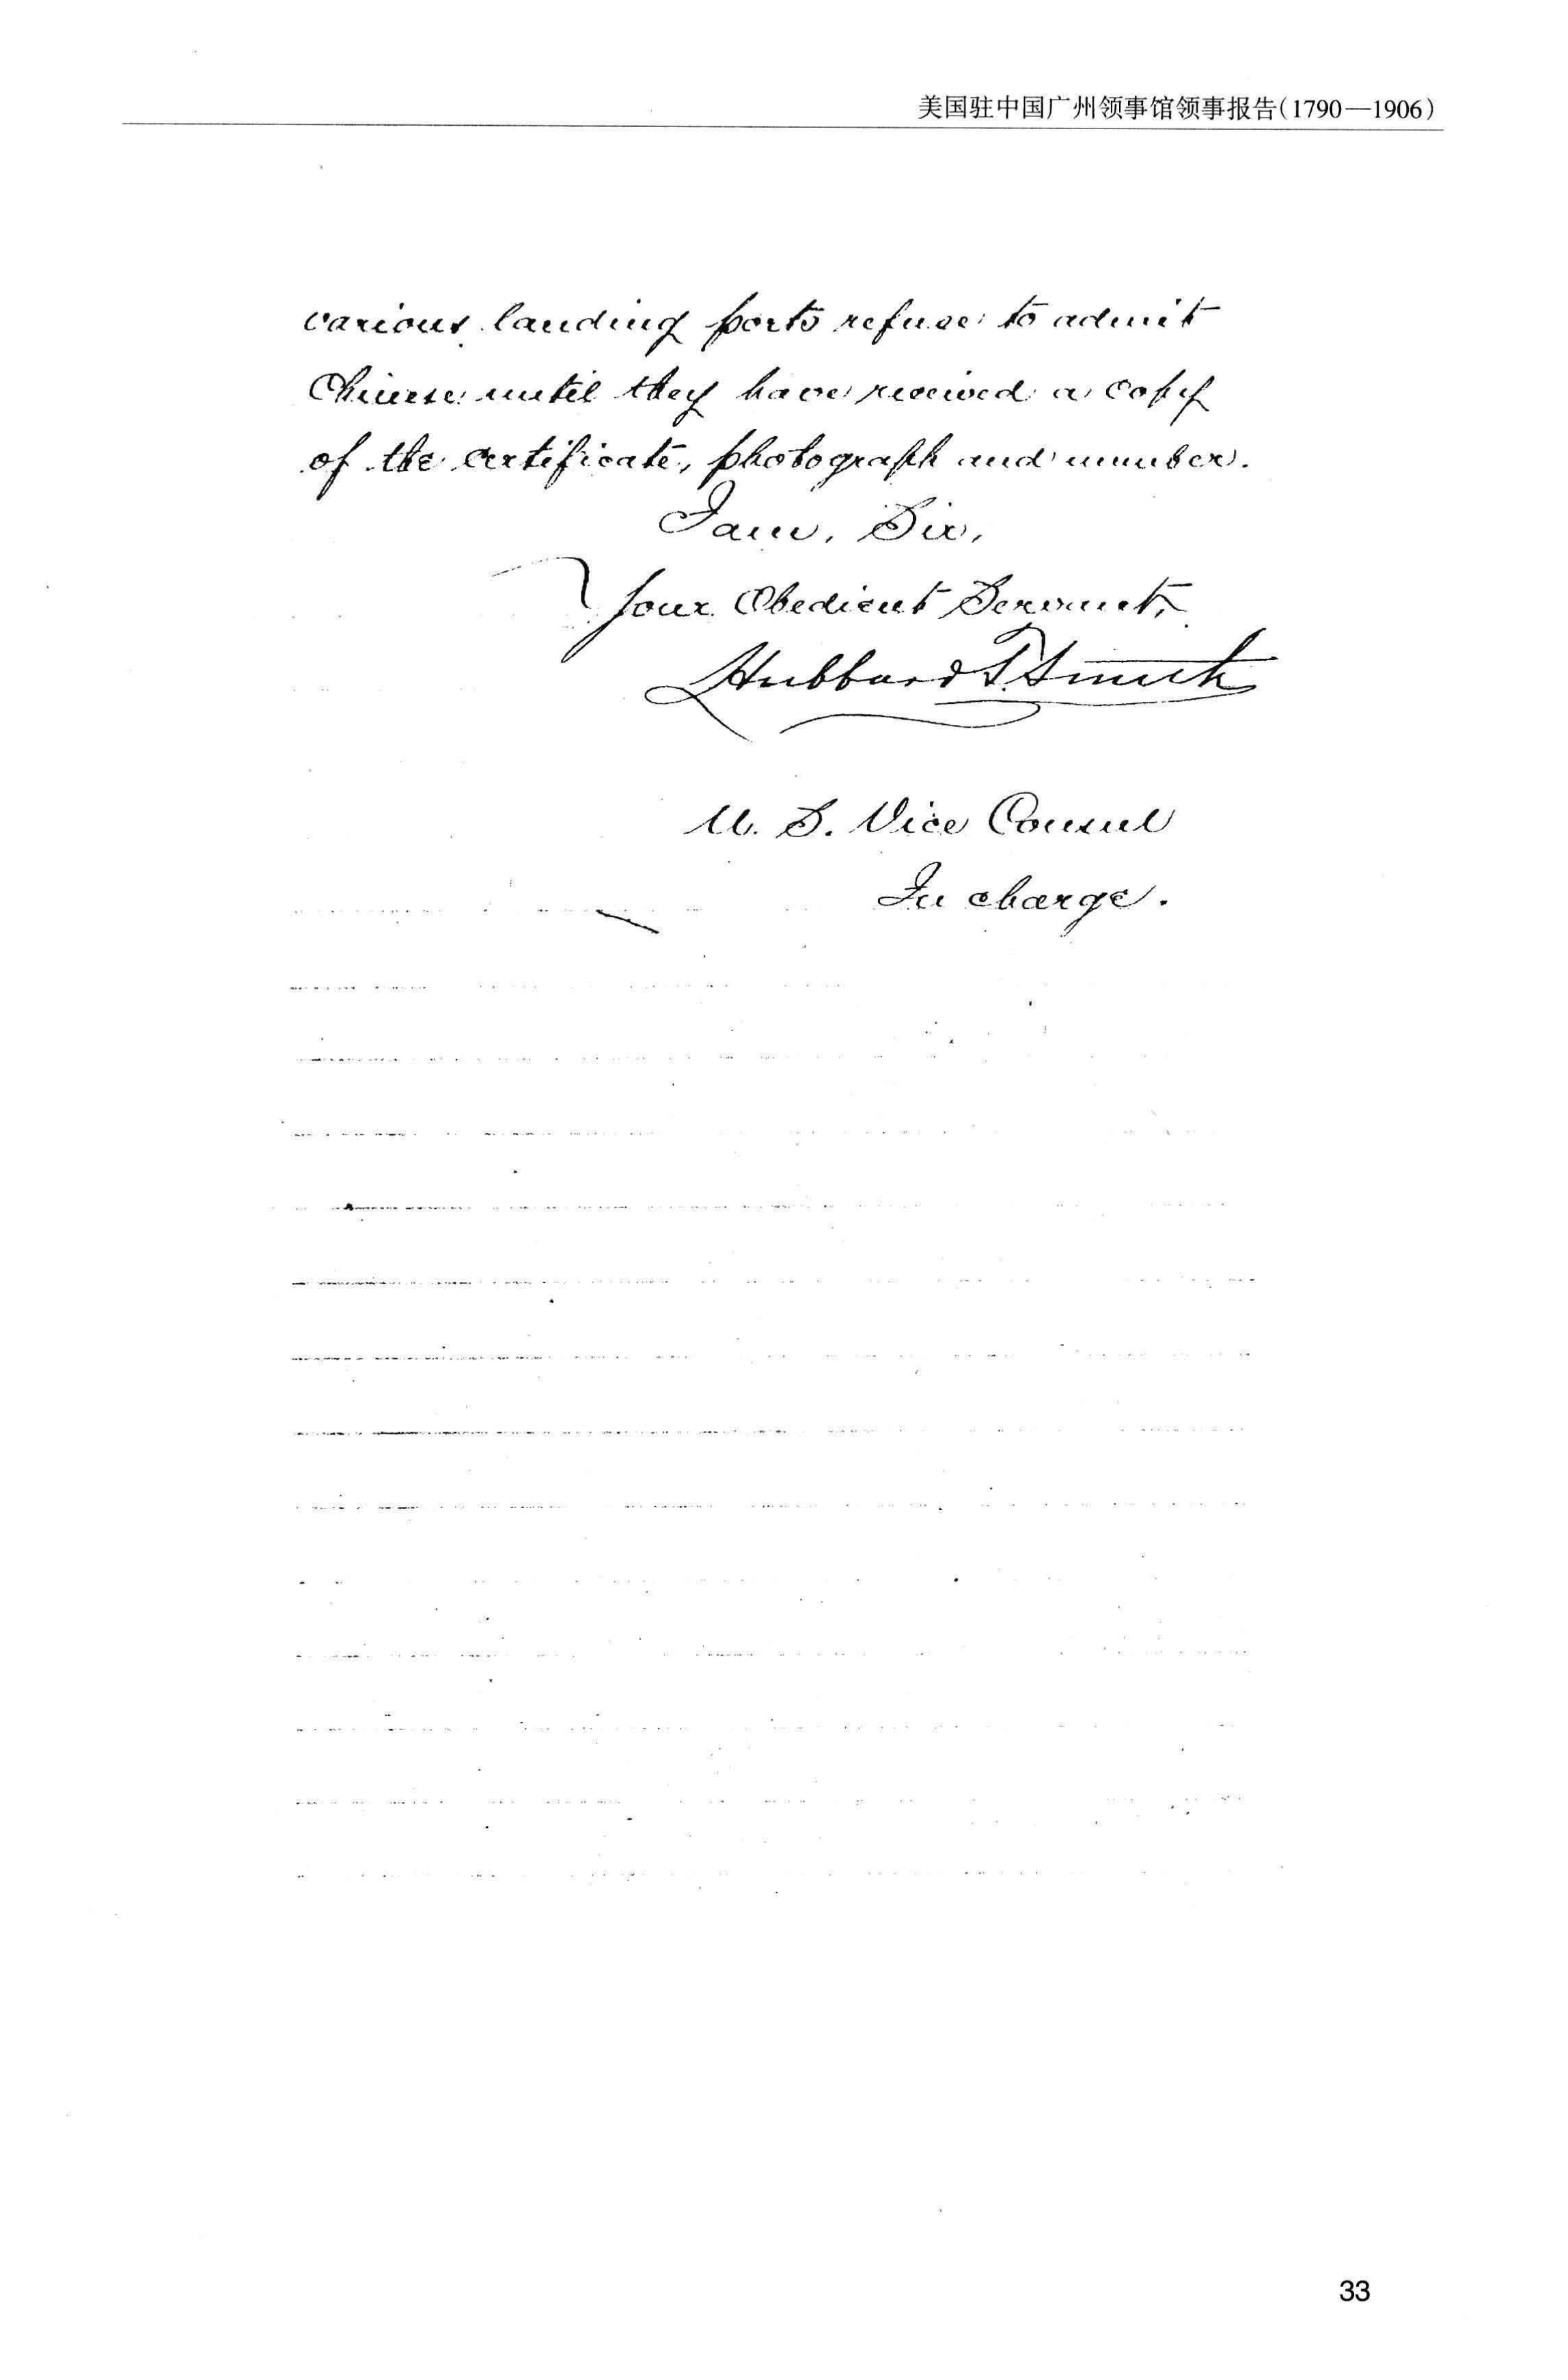 美国驻中国广州领事馆领事报告(1790—1906)
various landing ports refuse to admit
Chinese until they have received a copy
of the certificate, photograph and number.
I am, Sir,
Your Obedient Servant,
Hubbard T. Smith
U. S. Vice Consul
In charge.
33